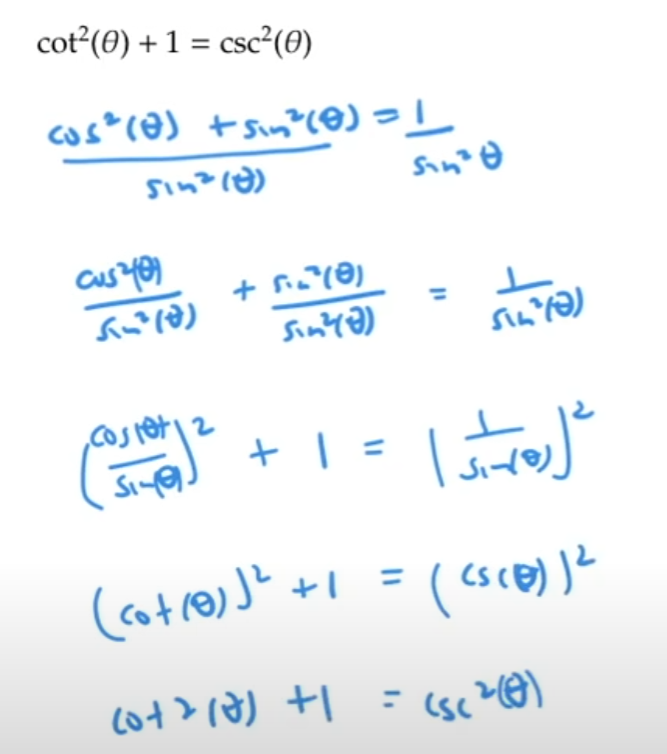 cot²(θ) + 1 = csc²(θ)
cos²(θ) + sin²(θ) / sin²(θ) = 1 / sin²θ
cos²(θ) / sin²(θ) + sin²(θ) / sin²(θ) = 1 / sin²(θ)
(cos(θ) / sin(θ))² + 1 = (1 / sin(θ))²
(cot(θ))² + 1 = (csc(θ))²
cot²(θ) + 1 = csc²(θ)